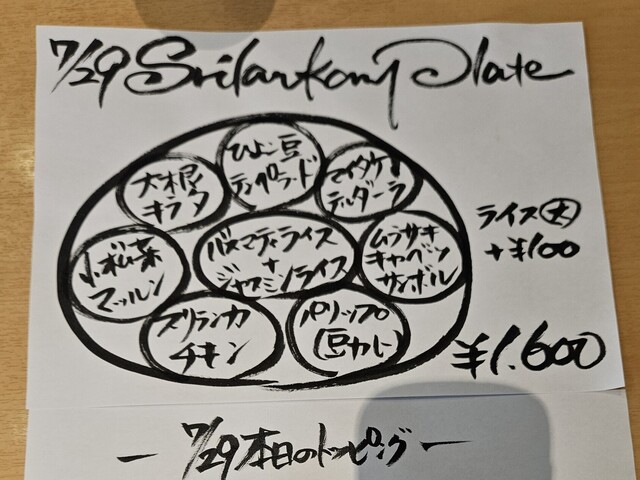 7/29 Srilankan Plate
ひよこ豆
テンプラード
大根
キラタ
マイタケ
テルダーラ
小松菜
マッルン
バスマティライス
+
ジャスミンライス
ムラサキ
キャベツ
サンボル
ライス大
+¥100
スリランカ
チキン
パリップ
(豆カレー)
¥1,600
— 7/29 本日のトッピング —